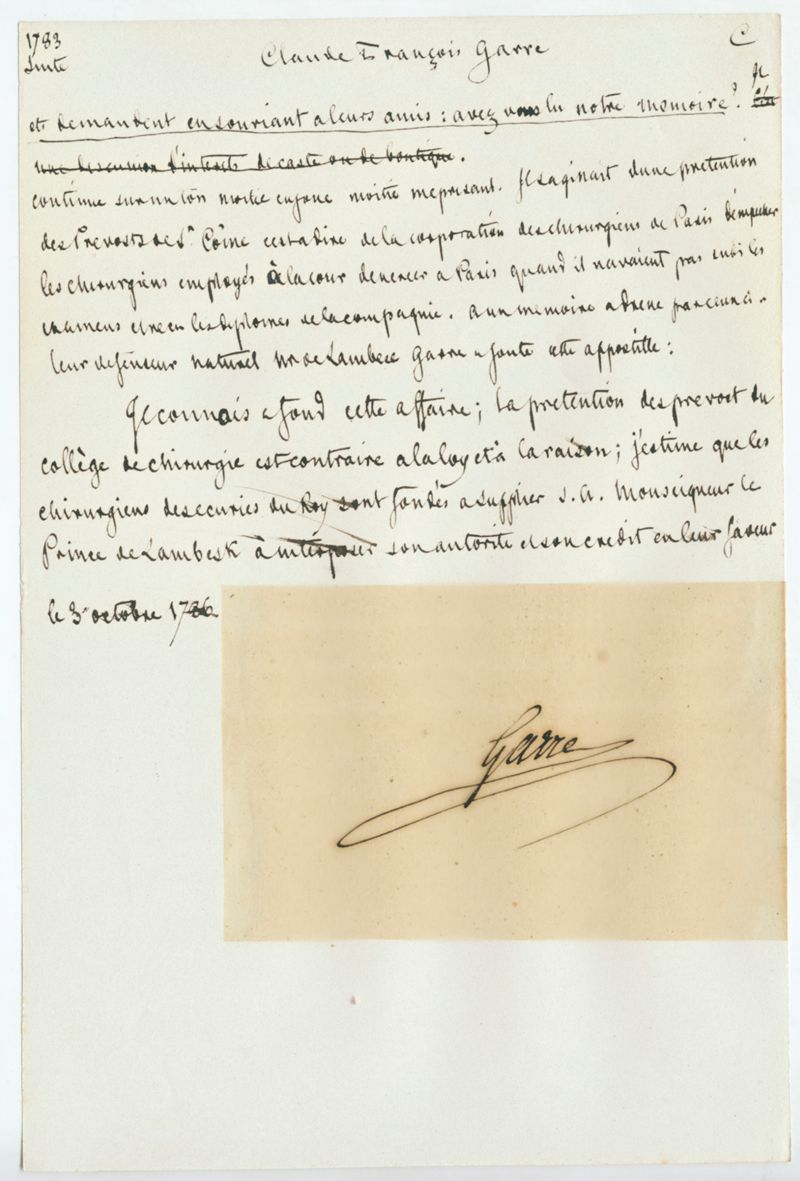 1783
Suite
Claude François Garre
C
et demandent en souriant a leurs amis : avez vous lu notre memoire ? Il
une discussion d'interets de caste ou de boutique.
continue sur un ton moitié enjoué moitié meprisant. Il s'aginait d'une pretention
des Prevosts de St Côme cestadire de la corporation des chirurgiens de Paris d'empecher
les chirurgiens employés à la cour d'exercer a Paris quand il n'avaient pas subi les
examens et recu les diplomes de la compagnie. a un memoire adressé par ceux ci
leur defenseur naturel Mr de Lambesc Garre ajoute cette appostille :
Je connais a fond cette affaire ; la pretention des prevost du
collège de chirurgie est contraire a la loy et à la raison ; j'estime que les
chirurgiens des ecuries du Roy sont fondés a supplier S. A. Monseigneur le
Prince de Lambesk à interposer son autorité et son credit en leur faveur
le 3 octobre 1786
Garre